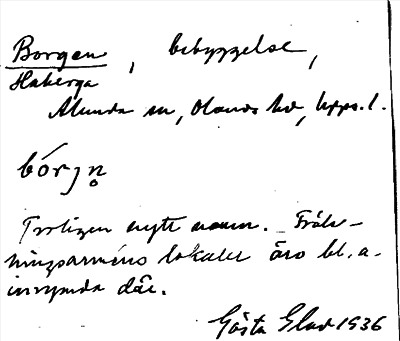 Borgen, bebyggelse,
Haberga
Alunda sn, Olands hd, Upps. l.
bórjn̥
Troligen nytt namn. Fräls-
ningsarméns lokaler äro bl. a.
inrymda där.
Gösta Glad 1936